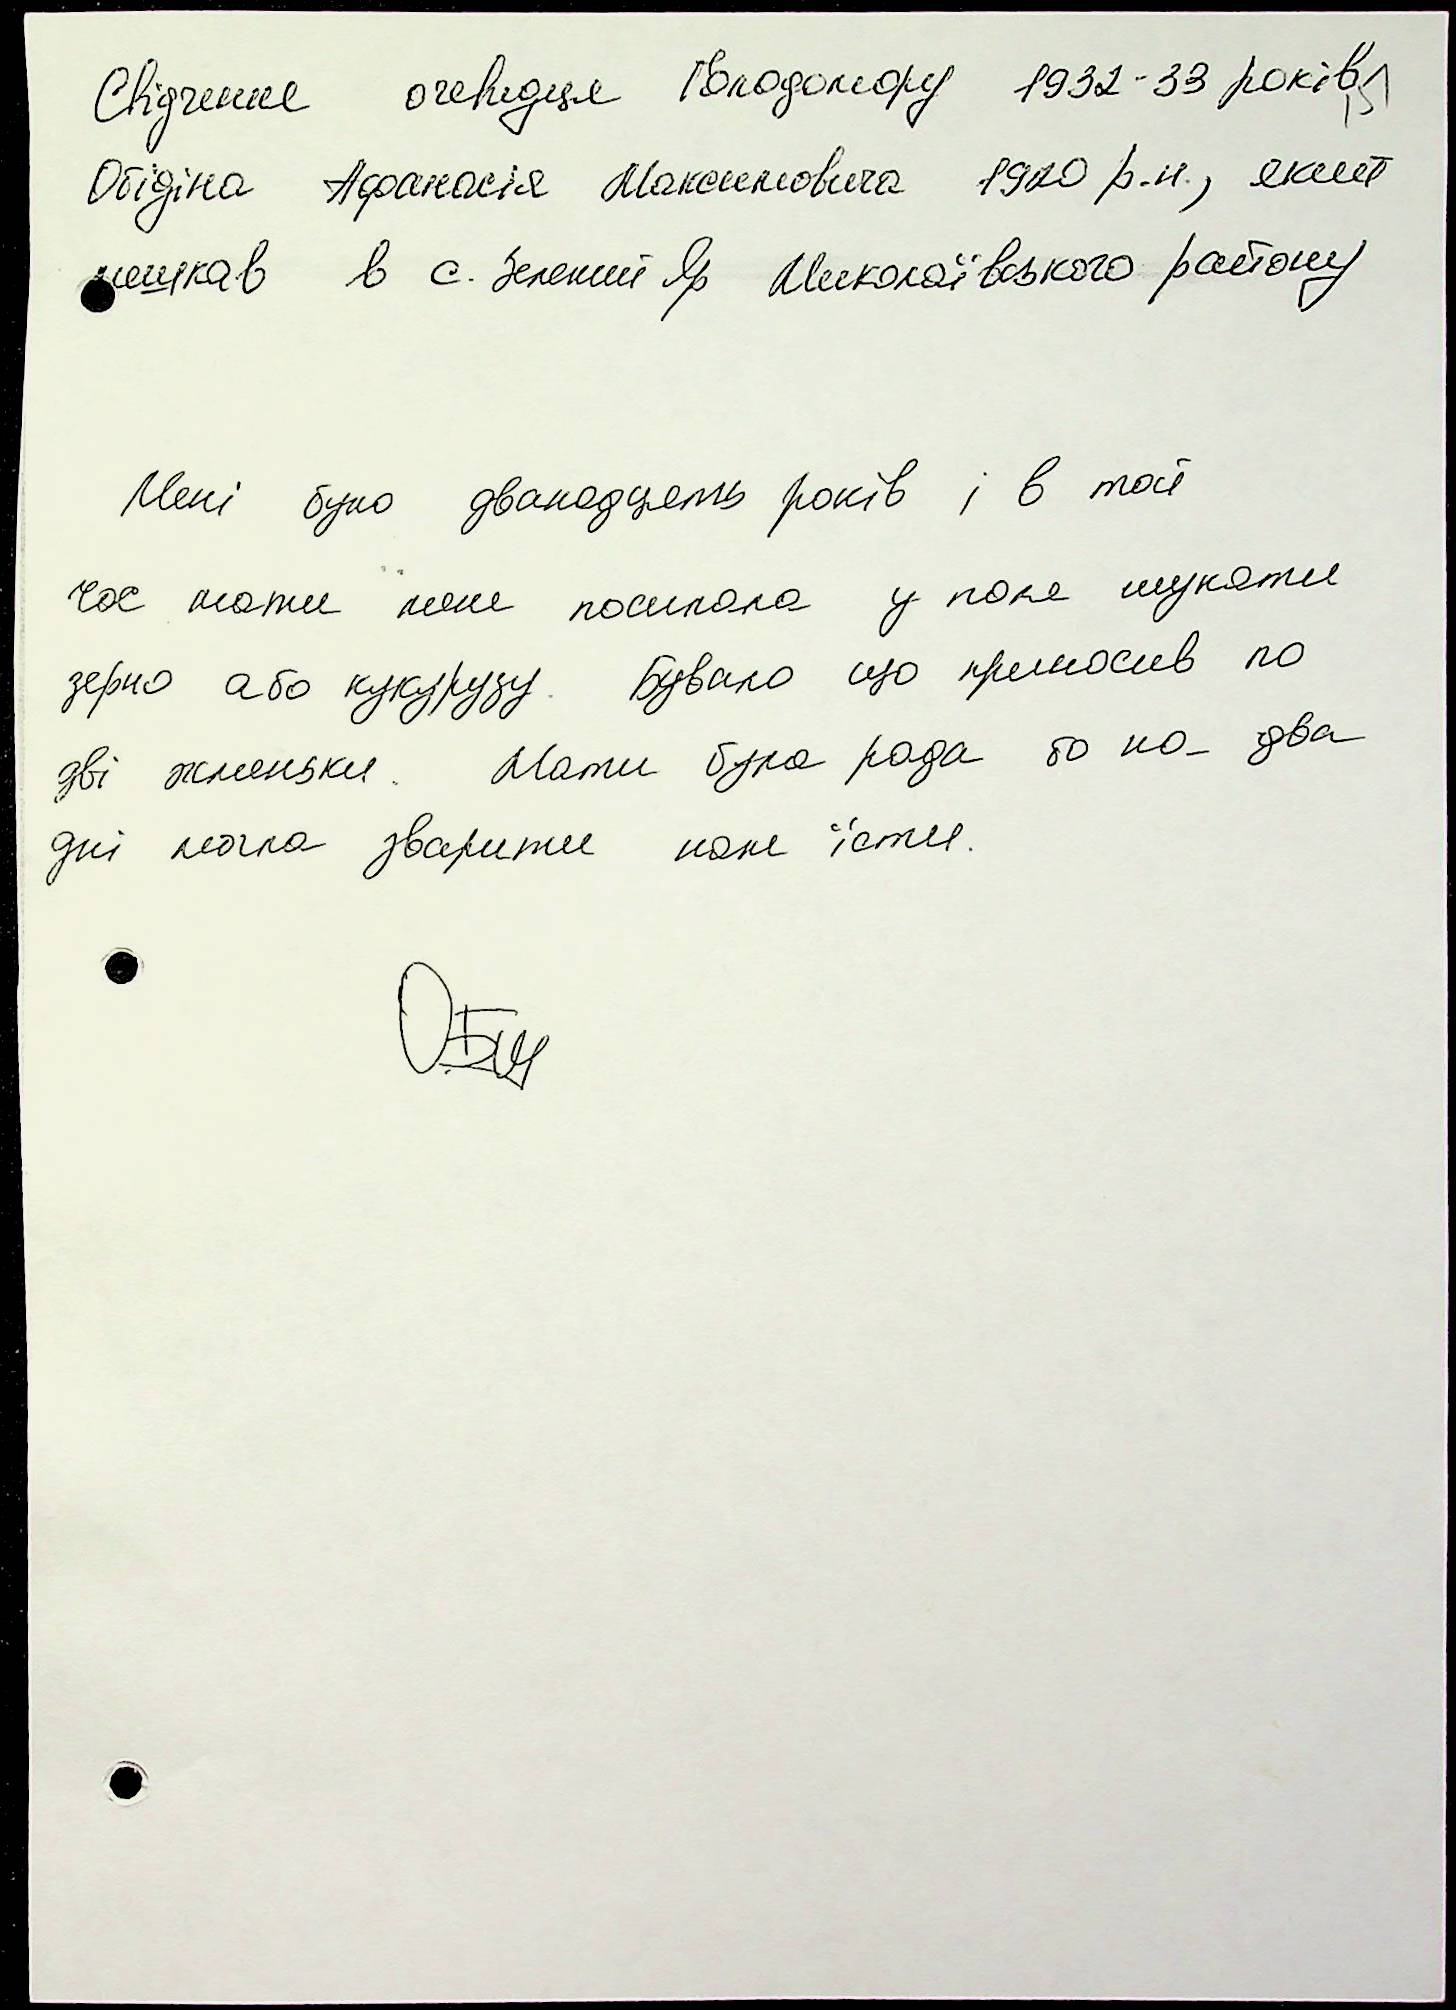 Свідчення очевидця Голодомору 1932-33 років
151
Обідіна Афанасія Максимовича 1920 р.н., який
мешкав в с. Зелений Яр Миколаївського району
Мені було дванадцять років і в той
час мати мене посилала у поле шукати
зерно або кукурузу. Бувало що приносив по
дві жменьки. Мати була рада бо на два
дні могла зварити нам їсти.